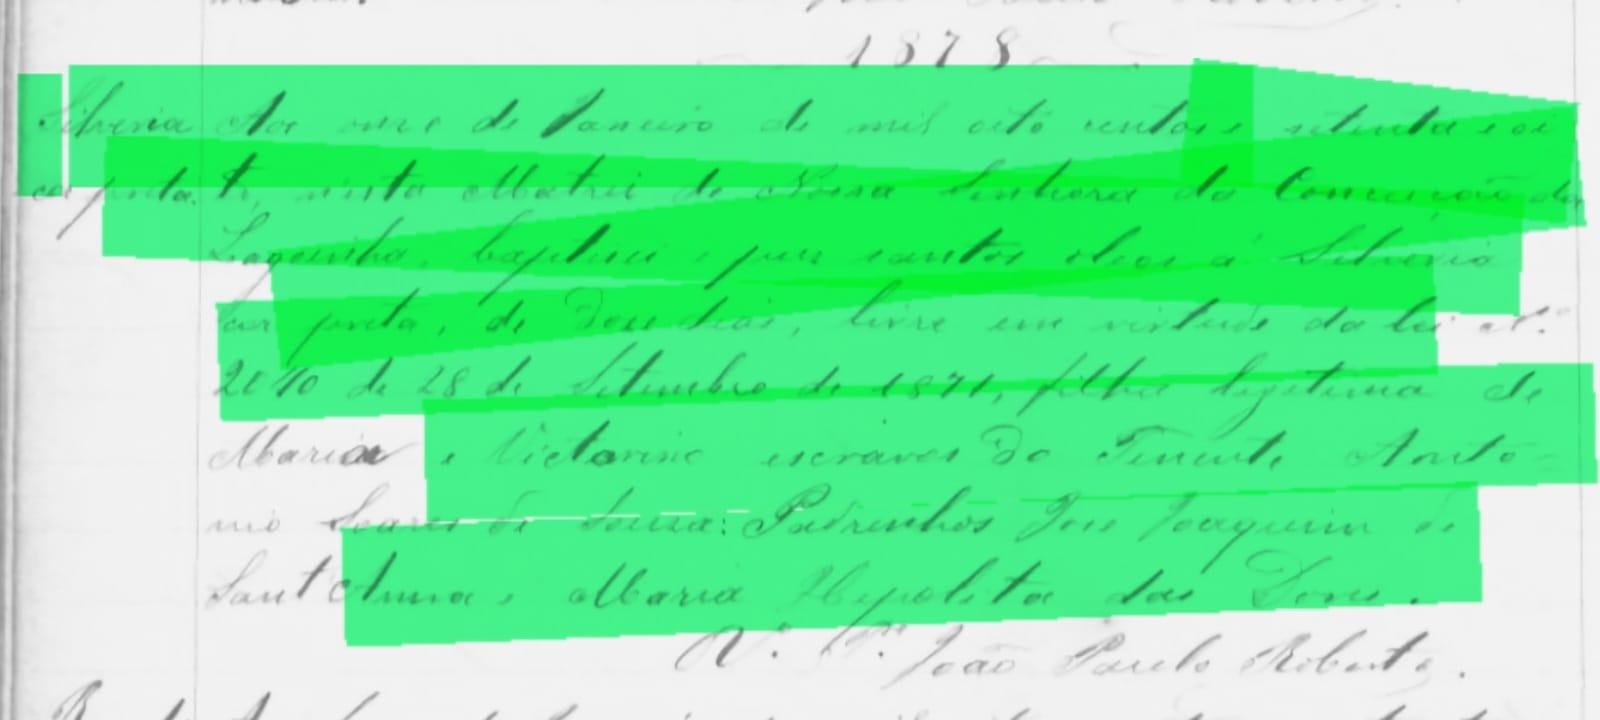 1878
Silveria Aos onze de Janeiro de mil oito centos e setenta e oi
cor preta. to, nesta Matriz de Nossa Senhora da Conceição da
Lagoinha, baptisei e puz santos oleos á Silveria
cor preta, de doze dias, livre em virtude da lei Nº
2040 de 28 de Setembro de 1871, filha legitima de
Maria e Victorino escravos do Tenente Anto=
nio Soares de Souza: Padrinhos José Joaquim de
Sant'Anna e Maria Hypolita das Dores.
João Roberto.